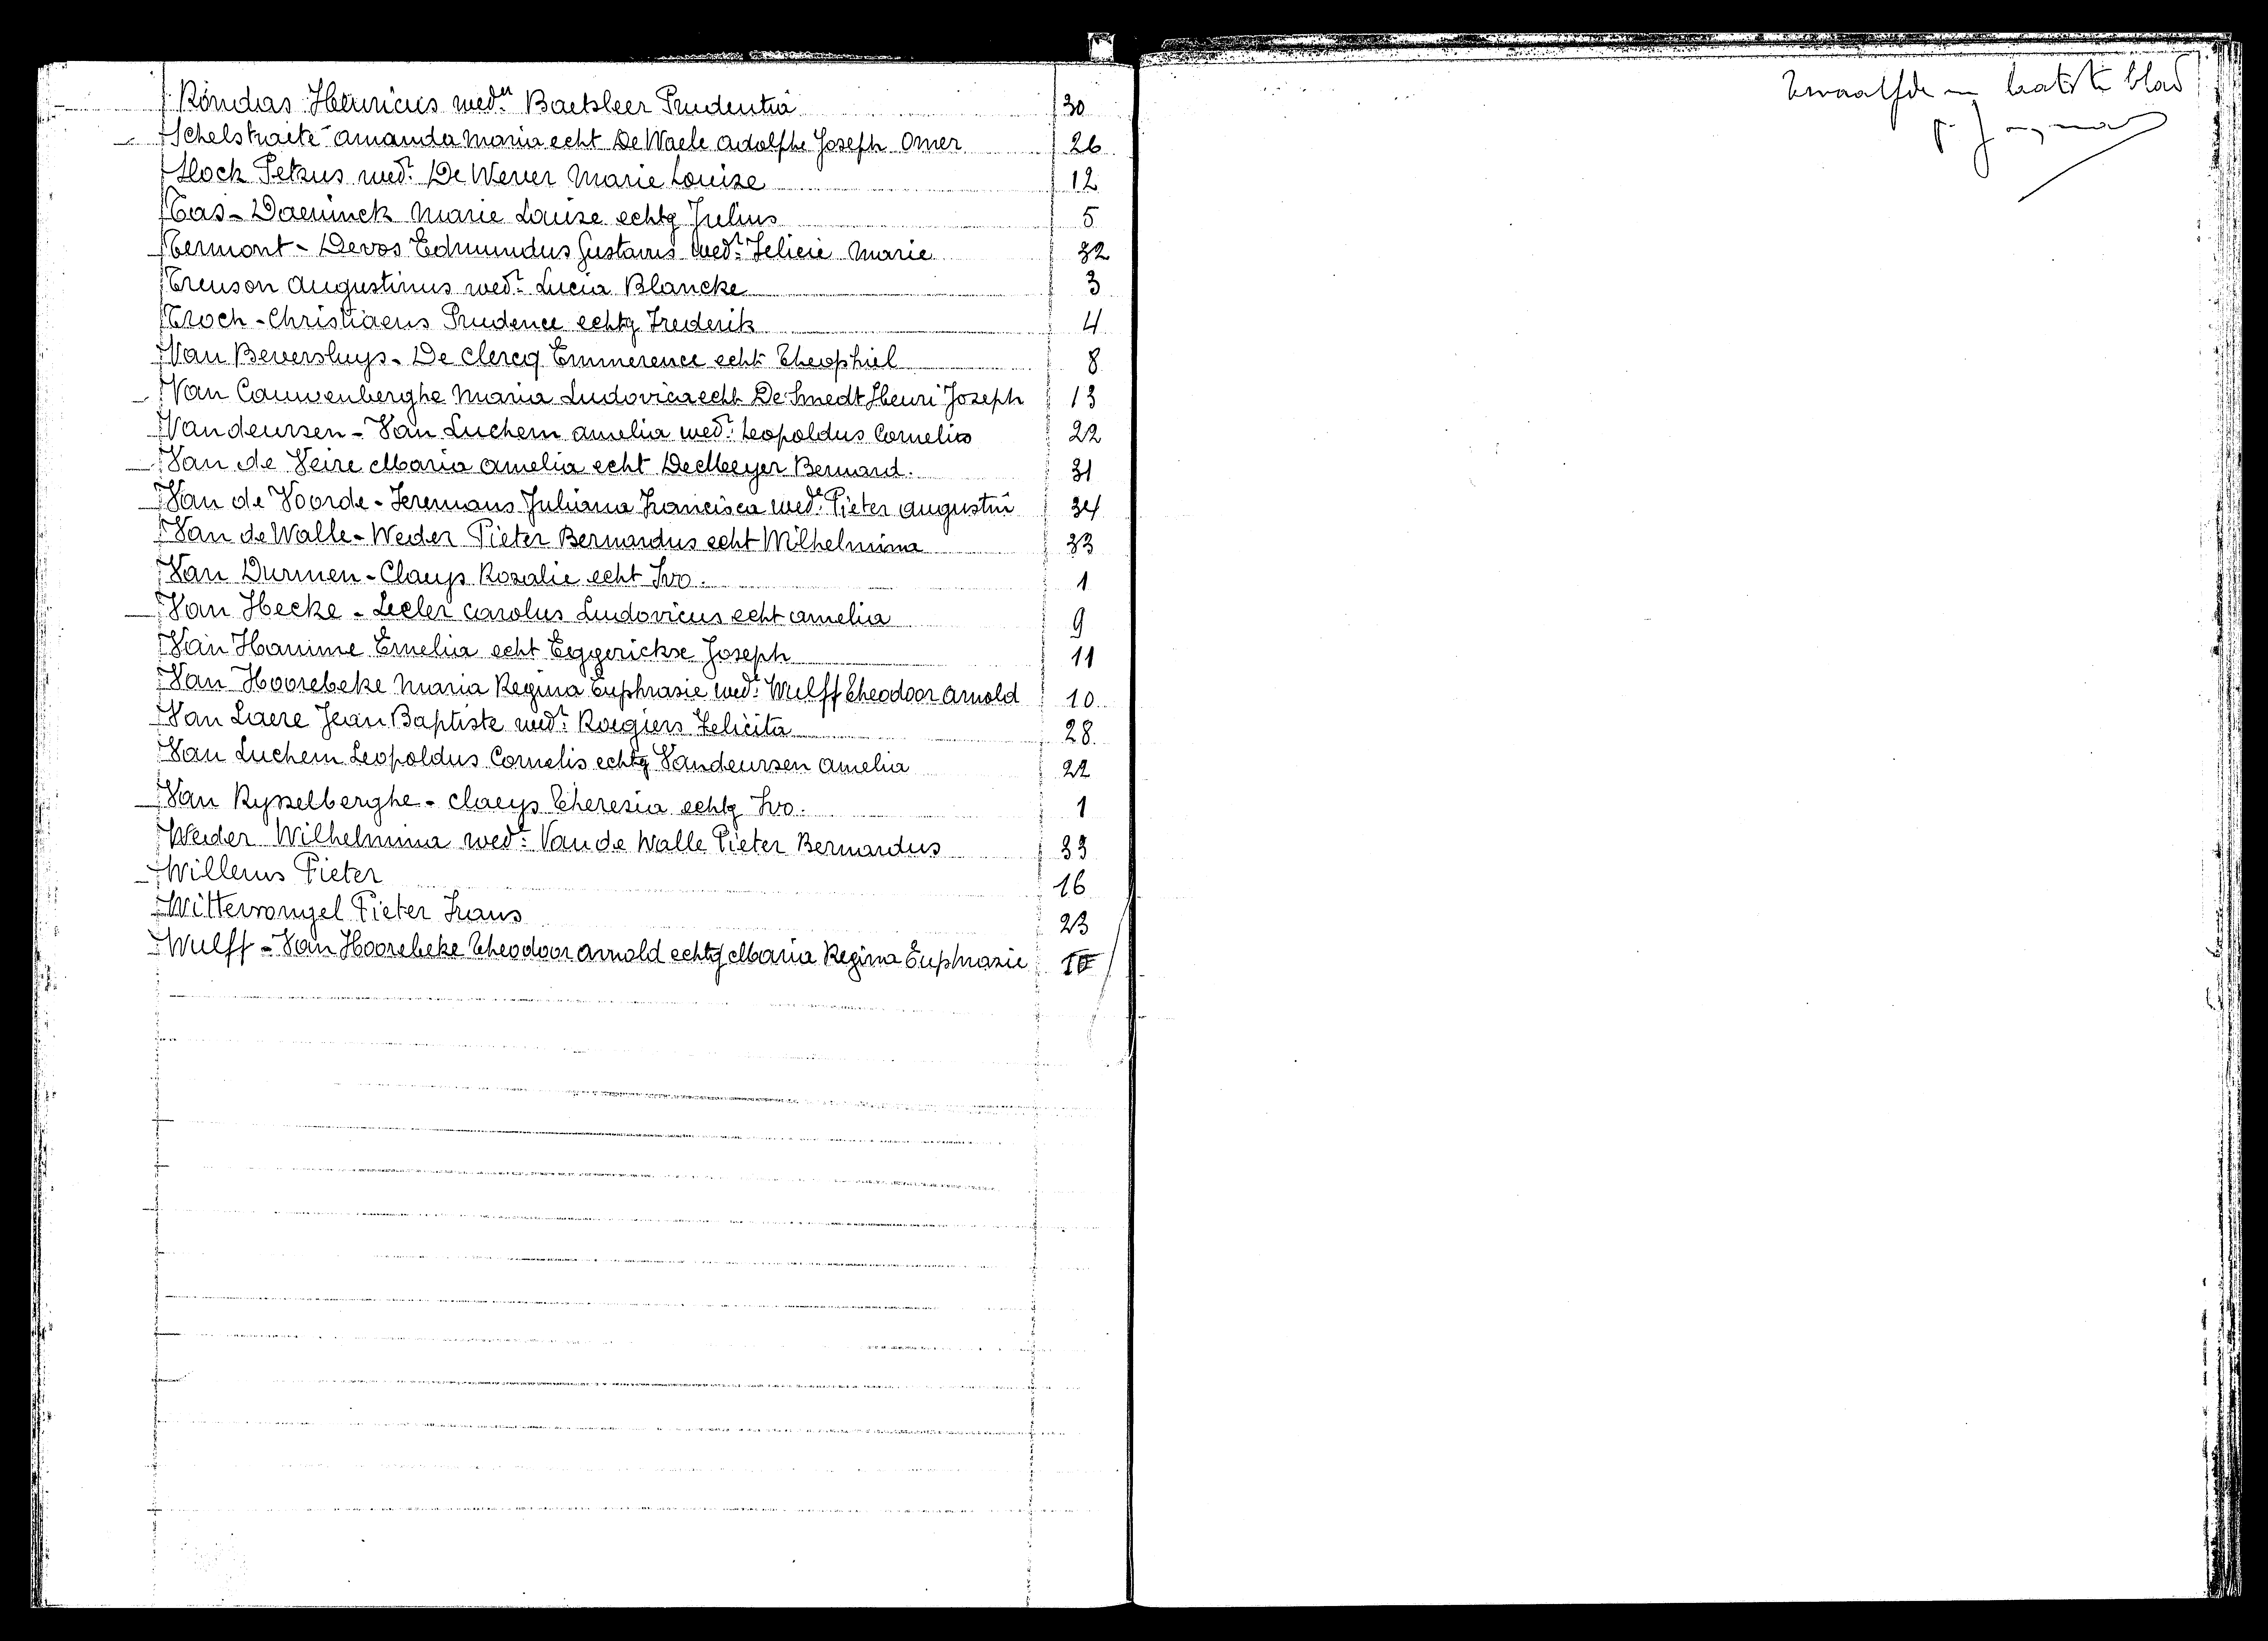 Rondas Henricus wedn Baetsleer Prudentia 30
Schelstraete Amanda Maria echt De Waele Adolphe Joseph Omer 26
Slock Petrus wedr De Wever Marie Louise 12
Tas - Daeninck Marie Louise echtg Julius 5
Termont - Devos Edmundus Gustavus wedr Felicie Marie 32
Treuson Augustinus wedr Lucia Blancke 3
Troch - Christiaens Prudence echtg Frederik 4
Van Beversluys - De Clercq Emmerence echt Theophiel 8
Van Cauwenberghe Maria Ludovica echt De Smedt Henri Joseph 13
Vandeursen - Van Luchem Amelia wedr Leopoldus Cornelis 22
Van de Veire Maria Amelia echt De Meyer Bernard. 31
Van de Voorde - Feremans Juliana Francisca wede Pieter Augustin 34
Van de Walle - Weider Pieter Bernardus echt Wilhelmina 33
Van Durmen - Claeys Rosalie echt Ivo. 1
Van Hecke - Lecler Carolus Ludovicus echt Amelia 9
Van Hamme Emelia echt Eggerickse Joseph 11
Van Hoorebeke Maria Regina Euphrasie wede Wulff Theodoor Arnold 10
Van Laere Jean Baptiste wedr Roegiers Felicita 28
Van Luchem Leopoldus Cornelis echtg Vandeursen Amelia 22
Van Rysselberghe - Claeys Theresia echtg Ivo. 1
Weider Wilhelmina wede Van de Walle Pieter Bernardus 33
Willems Pieter 16
Wittevrongel Pieter Frans 23
Wulff - Van Hoorebeke Theodoor Arnold echtg Maria Regina Euphrasie 10
Twaalfde en laatste blad